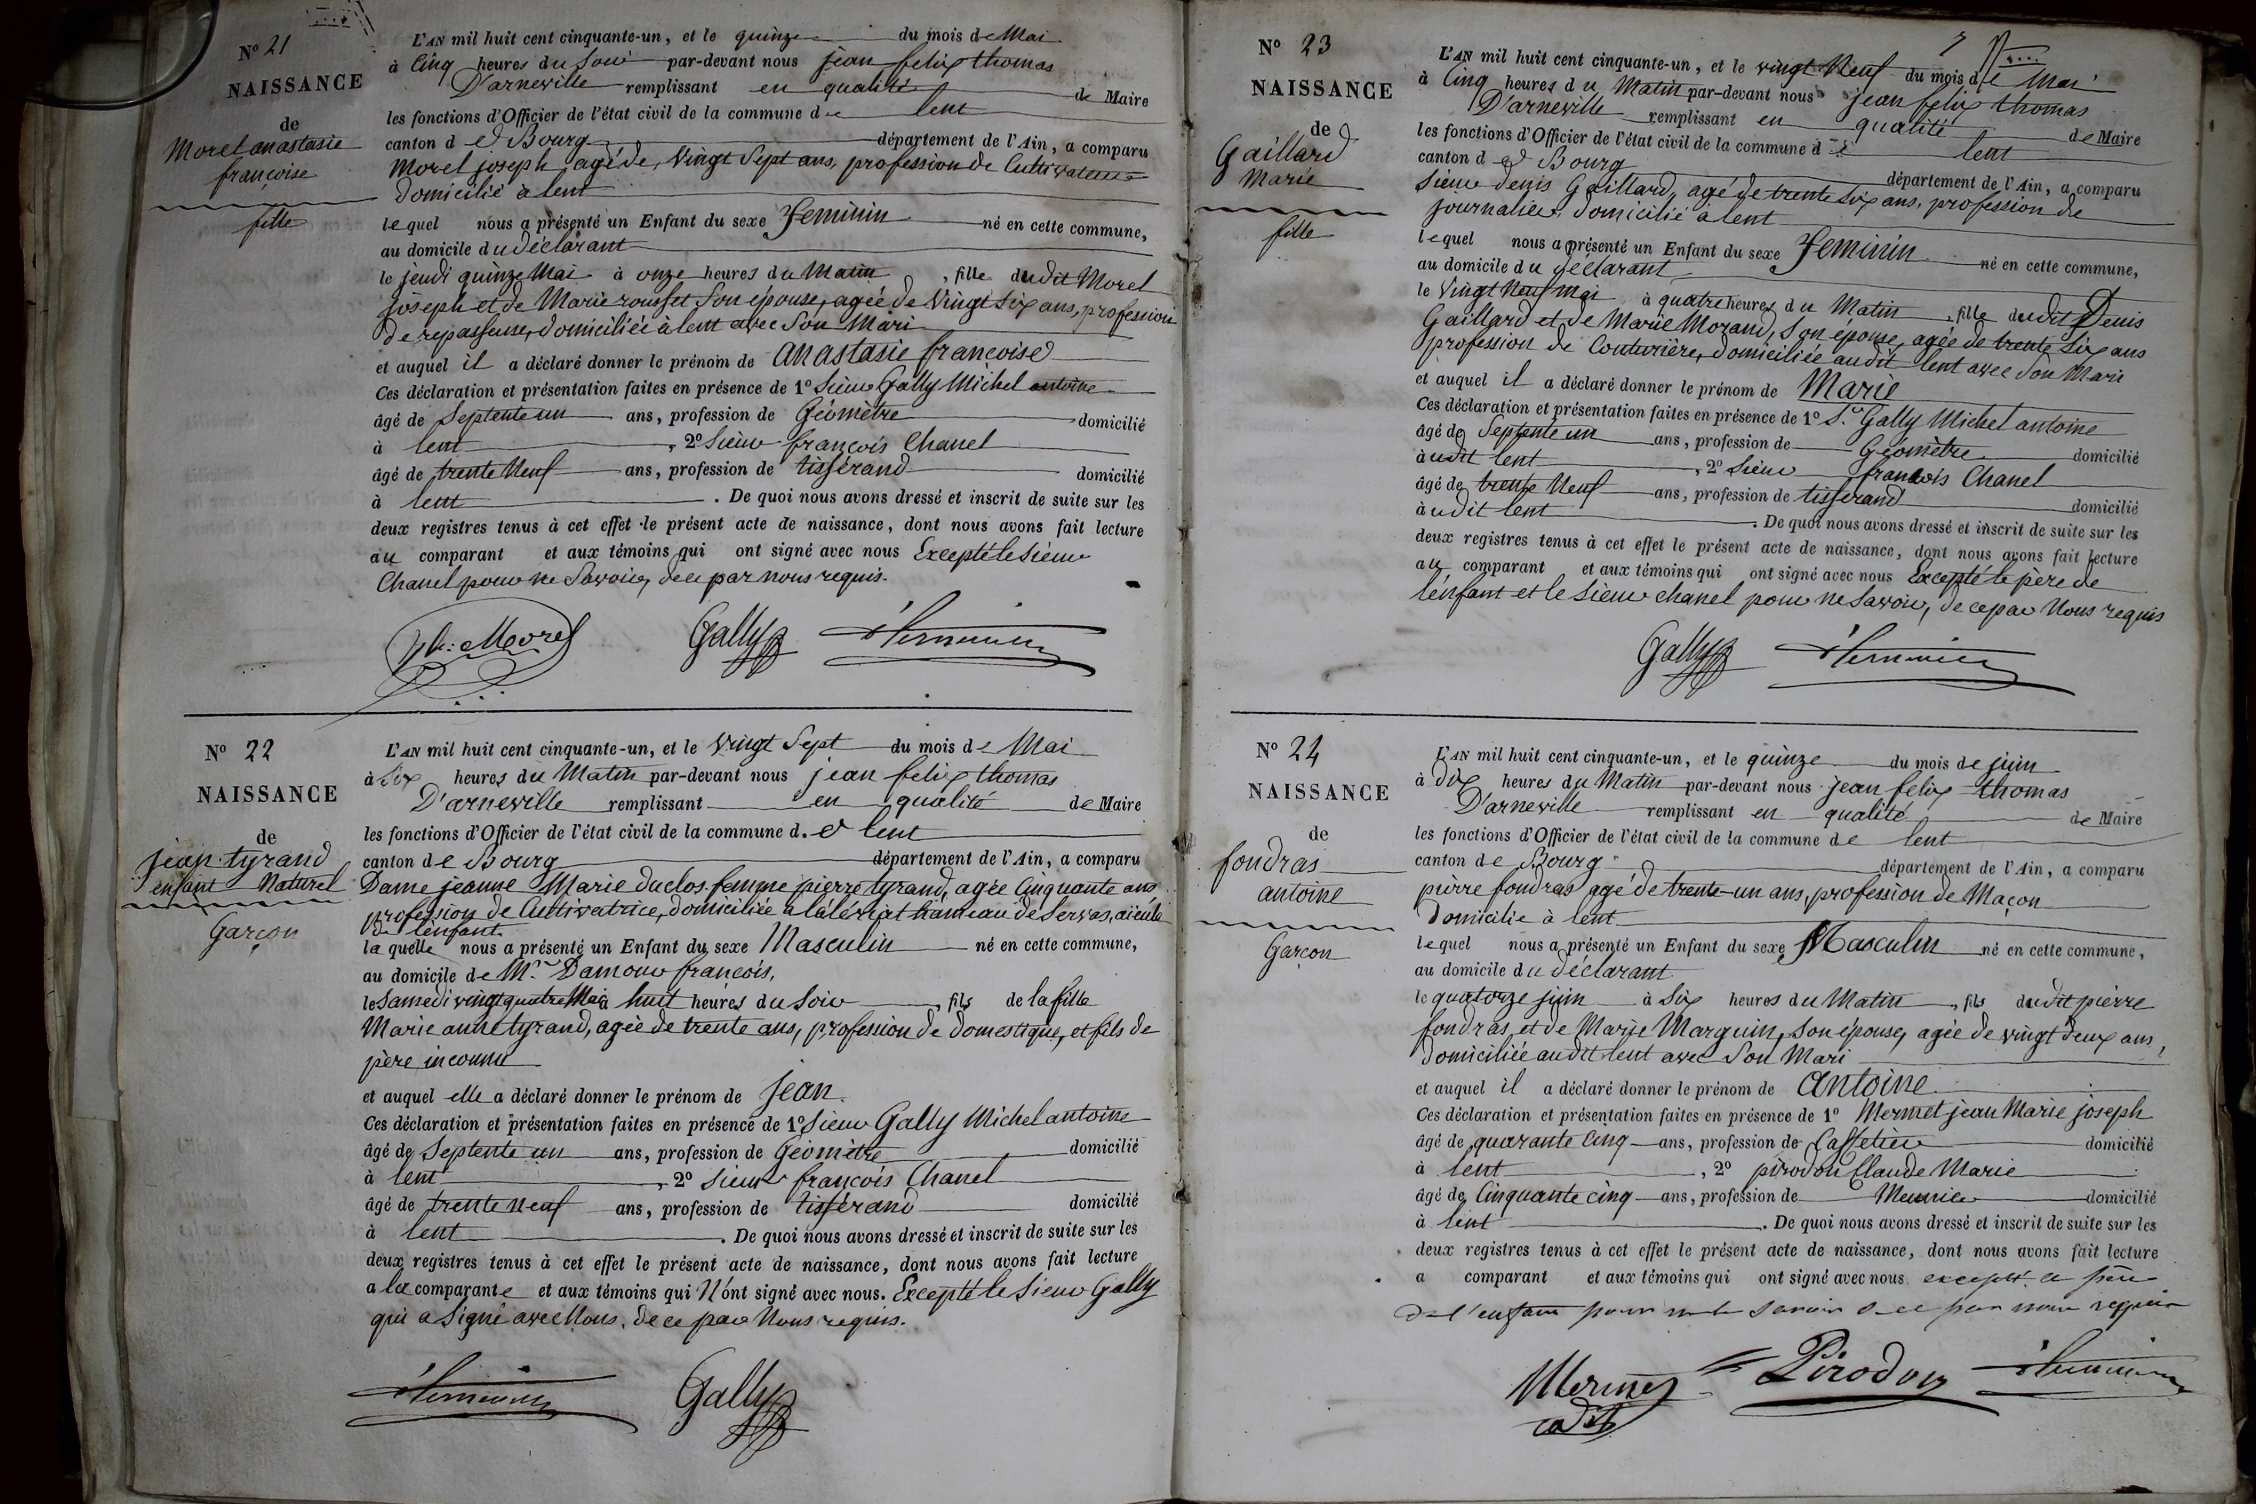 N° 21
NAISSANCE
de
Morel anastasie
françoise
fille
L'AN mil huit cent cinquante-un, et le quinze du mois de Mai
à Cinq heures du Soir par-devant nous jean felix thomas
D'arneville remplissant en qualité de Maire
les fonctions d'Officier de l'état civil de la commune de lent
canton d e Bourg département de l'Ain, a comparu
Morel joseph, agé de, Vingt Sept ans, profession de Cultivateur
domicilié à lent
lequel nous a présenté un Enfant du sexe Feminin né en cette commune,
au domicile du déclarant
le jeudi quinze Mai à onze heures du Matin, fille dudit Morel
joseph et de Marie rousset son épouse, agée de Vingt Six ans, profession
de repasseuse, domiciliée à lent avec Son Mari
et auquel il a déclaré donner le prénom de anastasie françoise
Ces déclaration et présentation faites en présence de 1° Sieur Gally Michel antoine
âgé de Septente un ans, profession de Géomètre domicilié
à lent, 2° Sieur françois Chanel
âgé de trente Neuf ans, profession de tissérand domicilié
à lent. De quoi nous avons dressé et inscrit de suite sur les
deux registres tenus à cet effet le présent acte de naissance, dont nous avons fait lecture
au comparant et aux témoins qui ont signé avec nous Excepté le Sieur
Chanel pour ne Savoir, de ce par nous requis.
Morel Gally
N° 22
NAISSANCE
de
jean tyrand
enfant Naturel
Garçon
L'AN mil huit cent cinquante-un, et le Vingt Sept du mois de Mai
à Six heures du Matin par-devant nous jean felix thomas
D'arneville remplissant en qualité de Maire
les fonctions d'Officier de l'état civil de la commune d. e lent
canton de Bourg département de l'Ain, a comparu
Dame jeanne Marie duclos femme pierre tyrand, agée Cinquante ans
profession de Cultivatrice, domiciliée à hameau de Servas, aieule
de l'enfant.
la quelle nous a présenté un Enfant du sexe Masculin né en cette commune,
au domicile de Mr. Damour françois,
le Samedi vingt quatre Mai à huit heures du Soir, fils de la fille
Marie anne tyrand, agée de trente ans, profession de domestique, et fils de
père inconnu
et auquel elle a déclaré donner le prénom de jean.
Ces déclaration et présentation faites en présence de 1° Sieur Gally Michel antoine
âgé de Septente un ans, profession de Géomètre domicilié
à lent, 2° Sieur françois Chanel
âgé de trente neuf ans, profession de tissérand domicilié
à lent. De quoi nous avons dressé et inscrit de suite sur les
deux registres tenus à cet effet le présent acte de naissance, dont nous avons fait lecture
a la comparante et aux témoins qui N'ont signé avec nous. Excepté le Sieur Gally
qui a Signé avec Nous, de ce par Nous requis.
Gally
N° 23
NAISSANCE
de
Gaillard
Marie
fille
L'AN mil huit cent cinquante-un, et le vingt Neuf du mois de Mai
à Cinq heures du Matin par-devant nous jean felix thomas
D'arneville remplissant en qualité de Maire
les fonctions d'Officier de l'état civil de la commune de lent
canton d e Bourg département de l'Ain, a comparu
Sieur denis Gaillard, agé de trente Six ans, profession de
journalier, domicilié à lent
lequel nous a présenté un Enfant du sexe Feminin né en cette commune,
au domicile du déclarant
le Vingt Neuf mai à quatre heures du Matin, fille dudit Denis
Gaillard et de Marie Morand, Son épouse, agée de trente Six ans
profession de Couturière, domiciliée audit lent avec Son Mari
et auquel il a déclaré donner le prénom de Marie
Ces déclaration et présentation faites en présence de 1° Sr. Gally Michel antoine
âgé de Septente un ans, profession de Géomètre domicilié
à udit lent, 2° Sieur françois Chanel
âgé de trente Neuf ans, profession de tisserand domicilié
à udit lent. De quoi nous avons dressé et inscrit de suite sur les
deux registres tenus à cet effet le présent acte de naissance, dont nous avons fait lecture
au comparant et aux témoins qui ont signé avec nous Excepté le père de
l'enfant et le Sieur chanel pour ne Savoir, de ce par Nous requis
Gally
N° 24
NAISSANCE
de
fondras
antoine
Garçon
L'AN mil huit cent cinquante-un, et le quinze du mois de juin
à dix heures du Matin par-devant nous jean felix thomas
D'arneville remplissant en qualité de Maire
les fonctions d'Officier de l'état civil de la commune de lent
canton de Bourg département de l'Ain, a comparu
pierre fondras agé de trente-un ans, profession de Maçon
domicilié à lent
lequel nous a présenté un Enfant du sexe Masculin né en cette commune,
au domicile du déclarant
le quatorze juin à Six heures du Matin, fils dudit pierre
fondras, et de Marie Marguin, Son épouse, agée de vingt deux ans,
domiciliée audit lent avec Son Mari
et auquel il a déclaré donner le prénom de antoine
Ces déclaration et présentation faites en présence de 1° Mermet jean Marie joseph
âgé de quarante Cinq ans, profession de Caffetier domicilié
à lent, 2° pirodon Claude Marie
âgé de Cinquante cinq ans, profession de Meunier domicilié
à lent. De quoi nous avons dressé et inscrit de suite sur les
deux registres tenus à cet effet le présent acte de naissance, dont nous avons fait lecture
a comparant et aux témoins qui ont signé avec nous excepté le père
de l'enfant pour ne le savoir de ce par nous requis
Mermet Pirodon